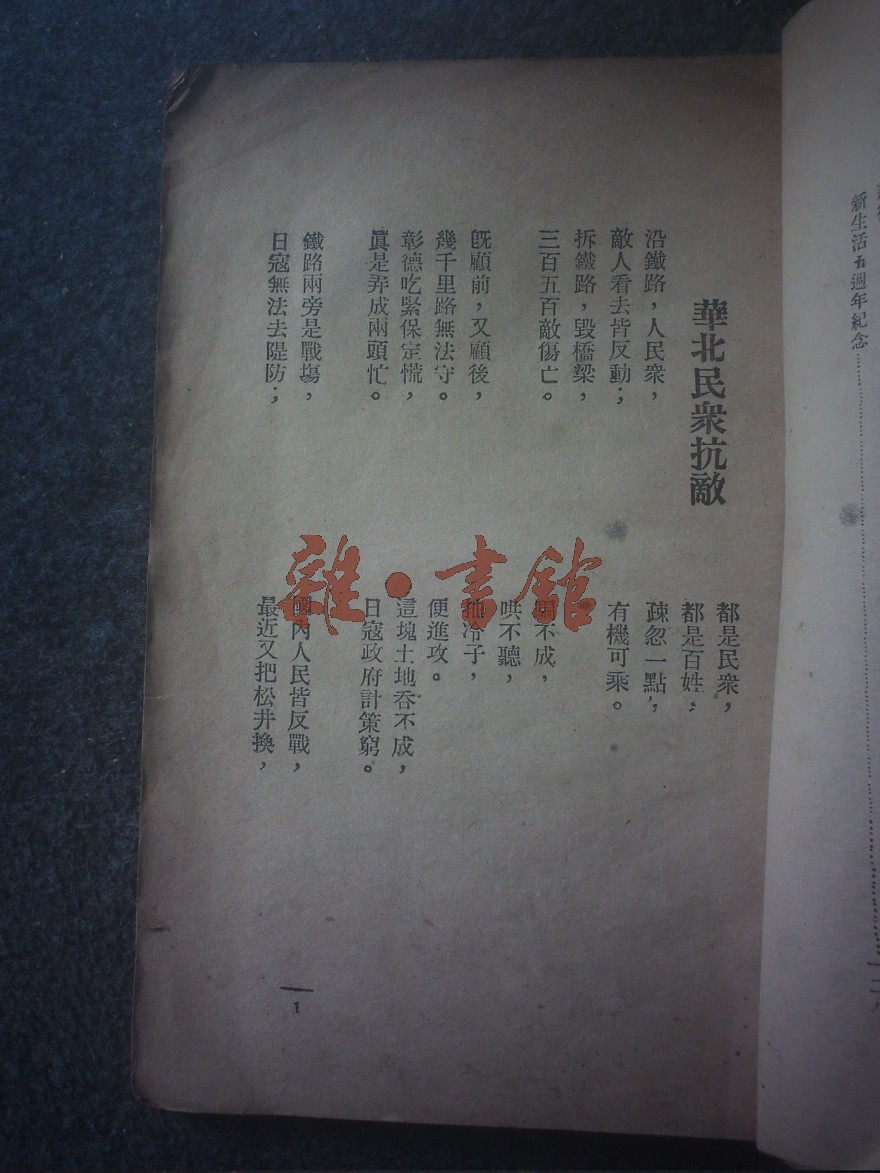 華北民衆抗敵
沿鐵路，人民衆，
敵人看去皆反動；
拆鐵路，毀橋樑，
三百五百敵傷亡。
旣顧前，又顧後，
幾千里路無法守。
彰德吃緊保定慌，
眞是弄成兩頭忙。
鐵路兩旁是戰場，
日寇無法去隄防；
都是民衆，
都是百姓；
疎忽一點，
有機可乘。
不成，
哄不聽，
冷子，
便進攻。
這塊土地吞不成，
日寇政府計策窮。
國內人民皆反戰，
最近又把松井換，
1
新生活五週年紀念
雜·書館